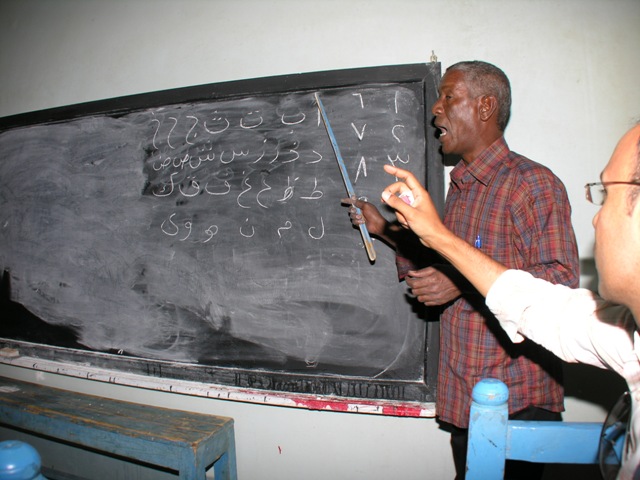 ١ ٦ ا ب ت ث ج ح خ
٢ ٧ د ذ ر ز س ش ص ض
٣ ٨ ط ظ ع غ ف ق ك
ل م ن ه و ى